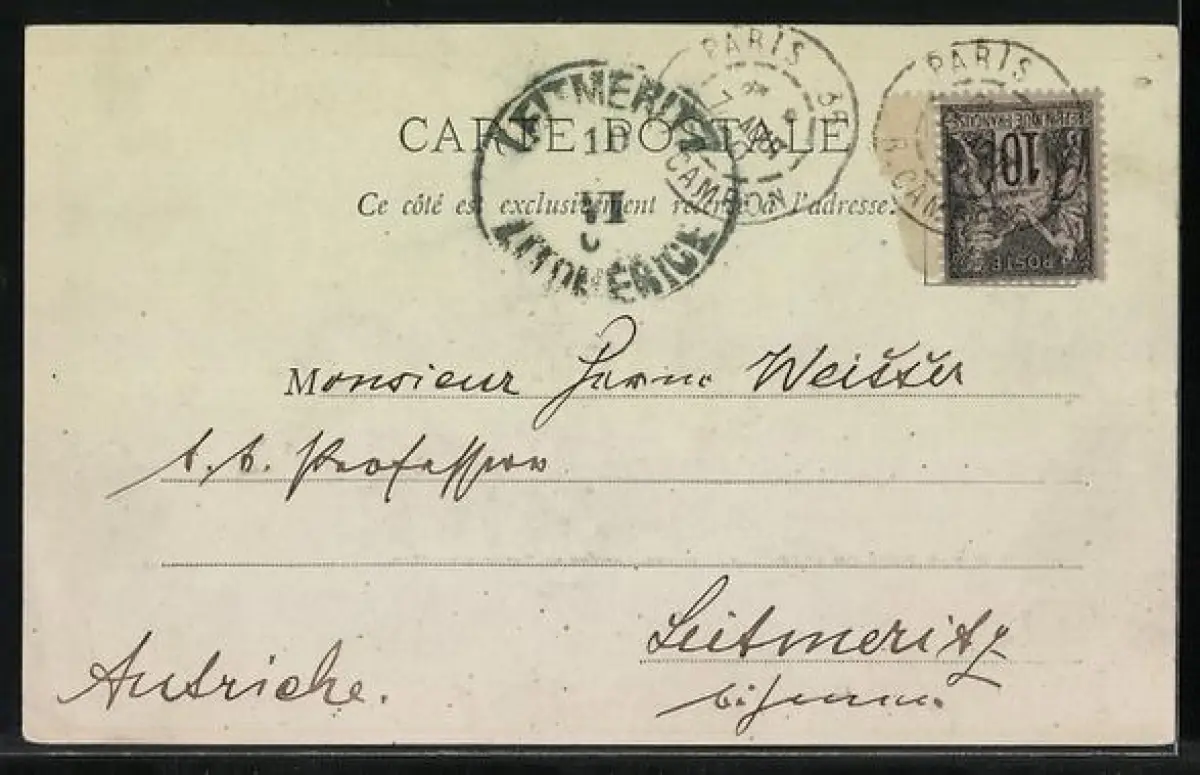 PARIS 35
R. CAMBON
PARIS
R. CAM
LEITMERITZ
10
VI
LITOMĚŘICE
CARTE POSTALE
Ce côté est exclusivement réservé à l'adresse.
RÉPUBLIQUE FRANÇAISE
10
POSTE
Monsieur Weisser
k. k. Professor
Leitmeritz
Autriche.